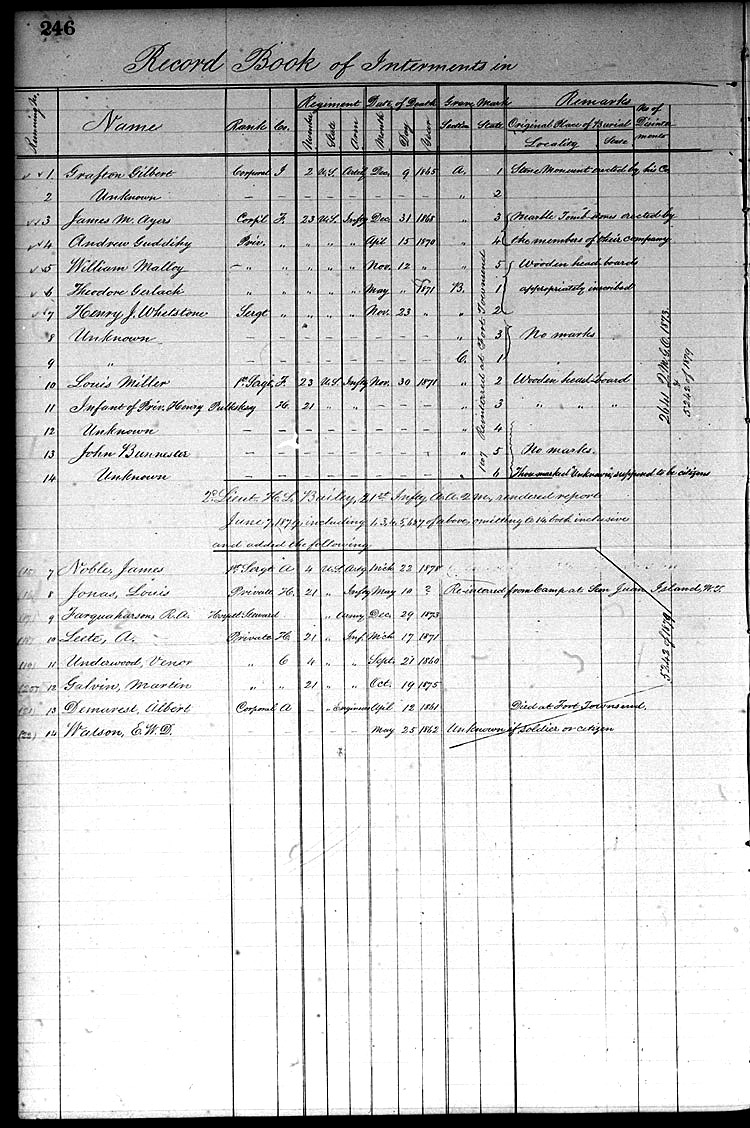 246
Record Book of Interments in
Running No. Name Rank Co. Regiment Date of Death Grave Mark Remarks No of Disinter-ments
Number State Arm Month Day Year Section State Original Place of Burial
Locality State
1 Grafton Gilbert Corporal I 2 U.S. Dec. 9 1865 A. 1 Stone Monument erected by his Co
2 Unknown — — — — — — — — " 2
3 James M. Ayers Corpl F. 23 U.S. Infty Dec. 31 1868 " 3 Marble Tomb stones erected by
4 Andrew Guddihy Priv. " " " " Apil 15 1870 " 4 the members of their company
5 William Malloy — " " " " " Nov. 12 " " 5 Wooden head boards
6 Theodore Gerlack " " " " " May " 1871 B. 1 appropriately inscribed
7 Henry J. Whetstone Sergt " " " " Nov. 23 " " 2
8 Unknown — — — — — — — — " 3 No marks
9 " — — — — — — — — C. 1 "
10 Louis Miller 1st Sergt F. 23 U.S. Infty Nov. 30 1871 " 2 Wooden head-board
11 Infant of Priv. Henry H. 21 " " — — — " 3 " " "
12 Unknown — — — — — — — — " 4
13 John Bunnester — — — — — — — — " 5 No marks.
14 Unknown — — — — — — — — " 6 marked Unknown, supposed to be citizens
Reinterred at Fort Townsend
2641 Q.M.G.O. 1873.
&
5242 of 1879
2d Lieut. H. L. Bailey, 21st Infty, A.A.Q.M., rendered report
June 7, 1879, including 1, 3, 4, 5, 6 & 7 of above, omitting 8 to 14 both inclusive
and added the following
7 Noble, James 1st Sergt A 4 U.S. Arty Mch 22 1878
8 Jonas, Louis Private H. 21 " Infty May 10 ? Re-interred from Camp at San Juan Island, W.T.
9 Farquaharson, R.A. Hospt. Steward " Army Dec. 29 1873
10 Leite, A. Private H. 21 " Inf. Mch 17 1871
11 Underwood, Venor " C 4 " " Sept. 21 1860
12 Galvin, Martin " " 21 " " Oct. 19 1875
13 Demurest, Albert Corporal A — " Engineers Apil 12 1861 Died at Fort Townsend.
14 Watson, E.W.D. — — — May 25 1862 Unknown if soldier or citizen
5242 of 1879